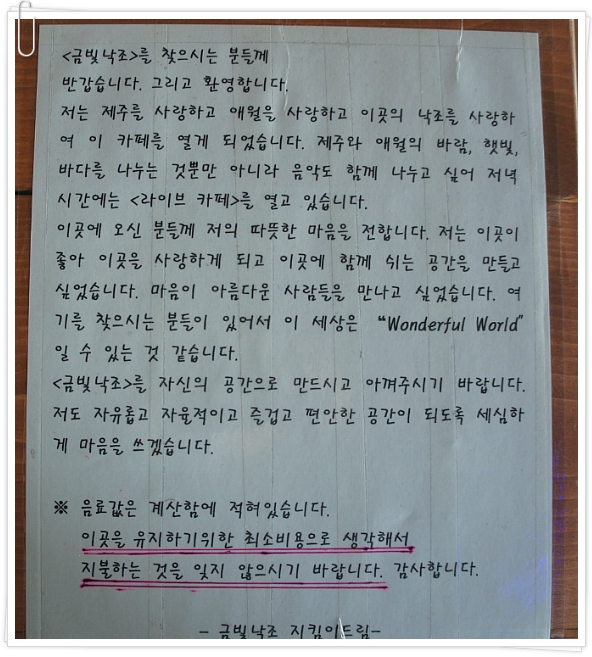 <금빛낙조>를 찾으시는 분들께
반갑습니다. 그리고 환영합니다.
저는 제주를 사랑하고 애월을 사랑하고 이곳의 낙조를 사랑하
여 이 카페를 열게 되었습니다. 제주와 애월의 바람, 햇빛,
바다를 나누는 것뿐만 아니라 음악도 함께 나누고 싶어 저녁
시간에는 <라이브 카페>를 열고 있습니다.
이곳에 오신 분들께 저의 따뜻한 마음을 전합니다. 저는 이곳이
좋아 이곳을 사랑하게 되고 이곳에 함께 쉬는 공간을 만들고
싶었습니다. 마음이 아름다운 사람들을 만나고 싶었습니다. 여
기를 찾으시는 분들이 있어서 이 세상은 “Wonderful World”
일 수 있는 것 같습니다.
<금빛낙조>를 자신의 공간으로 만드시고 아껴주시기 바랍니다.
저도 자유롭고 자율적이고 즐겁고 편안한 공간이 되도록 세심하
게 마음을 쓰겠습니다.
※ 음료값은 계산함에 적혀있습니다.
이곳을 유지하기위한 최소비용으로 생각해서
지불하는 것을 잊지 않으시기 바랍니다. 감사합니다.
- 금빛낙조 지킴이드림-